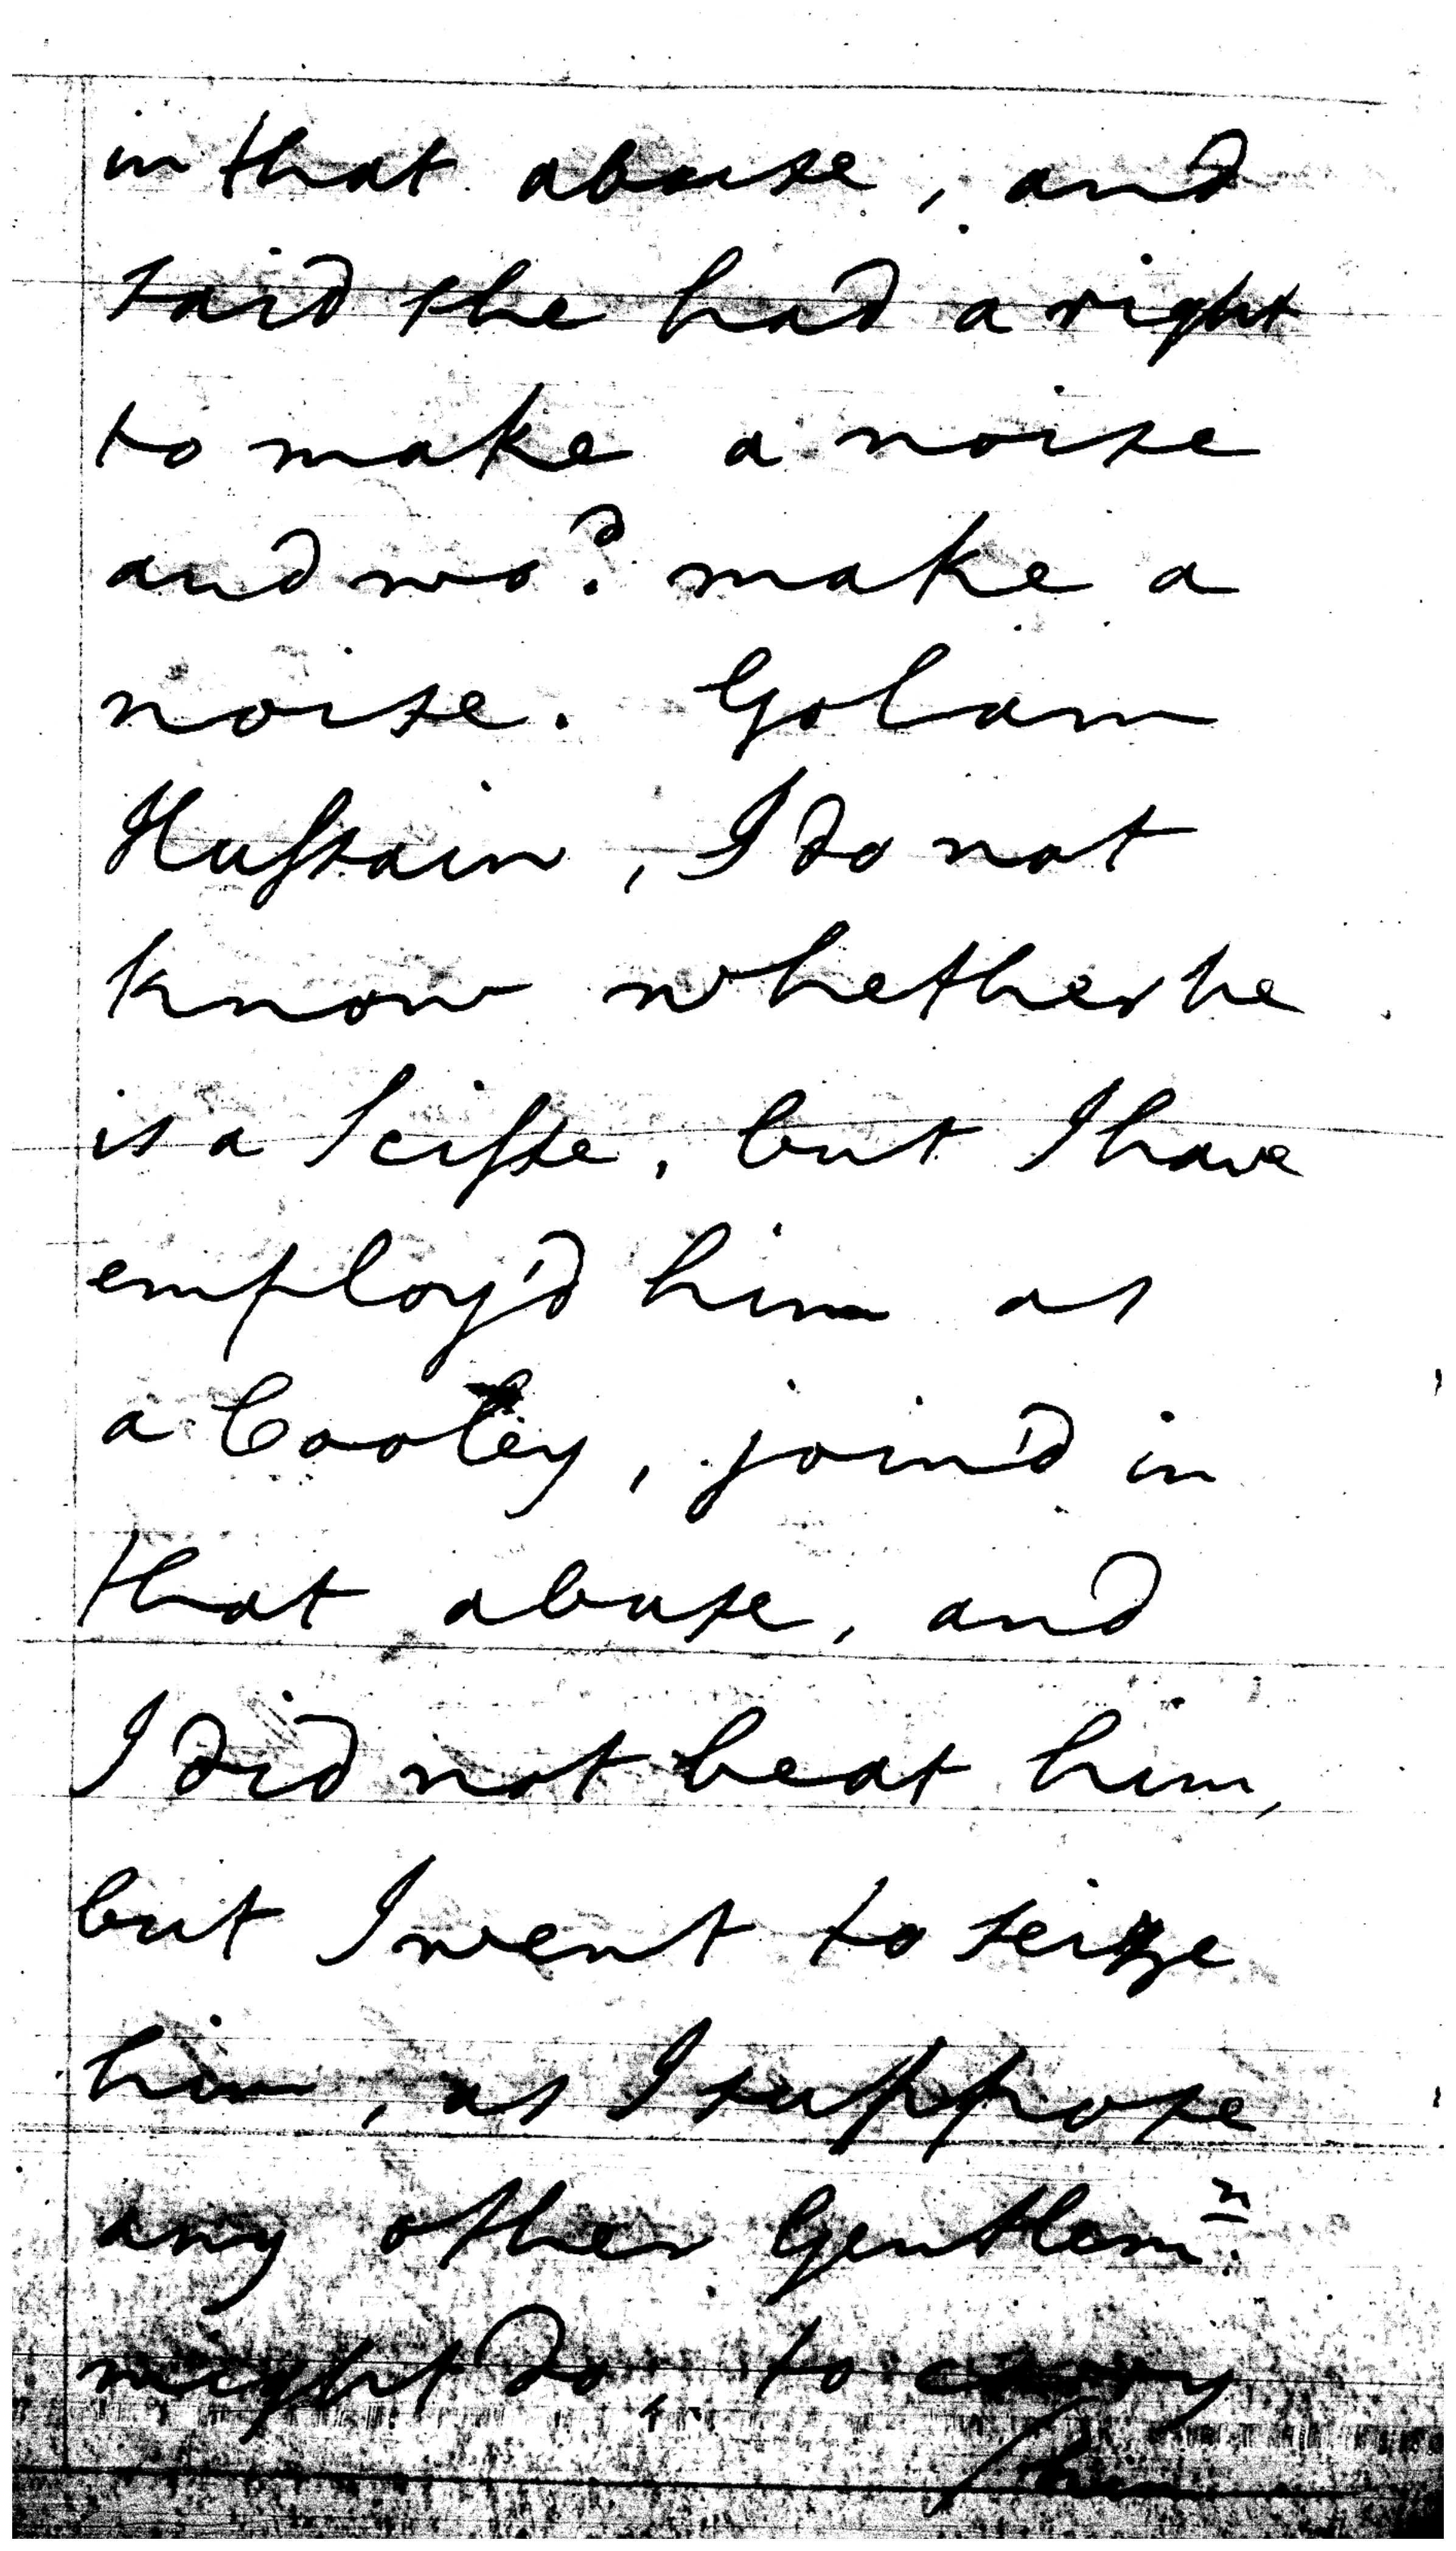 in that abuse, and
said she had a right
to make a noise
and wo.d make a
noise. Golam
Hussain, I do not
know whether he
is a Scisse, but I have
employ'd him as
a Cooley, join'd in
that abuse, and
I did not beat him,
but I went to seize
him, as I suppose
any other Gentlem.n
might do, to carry
him